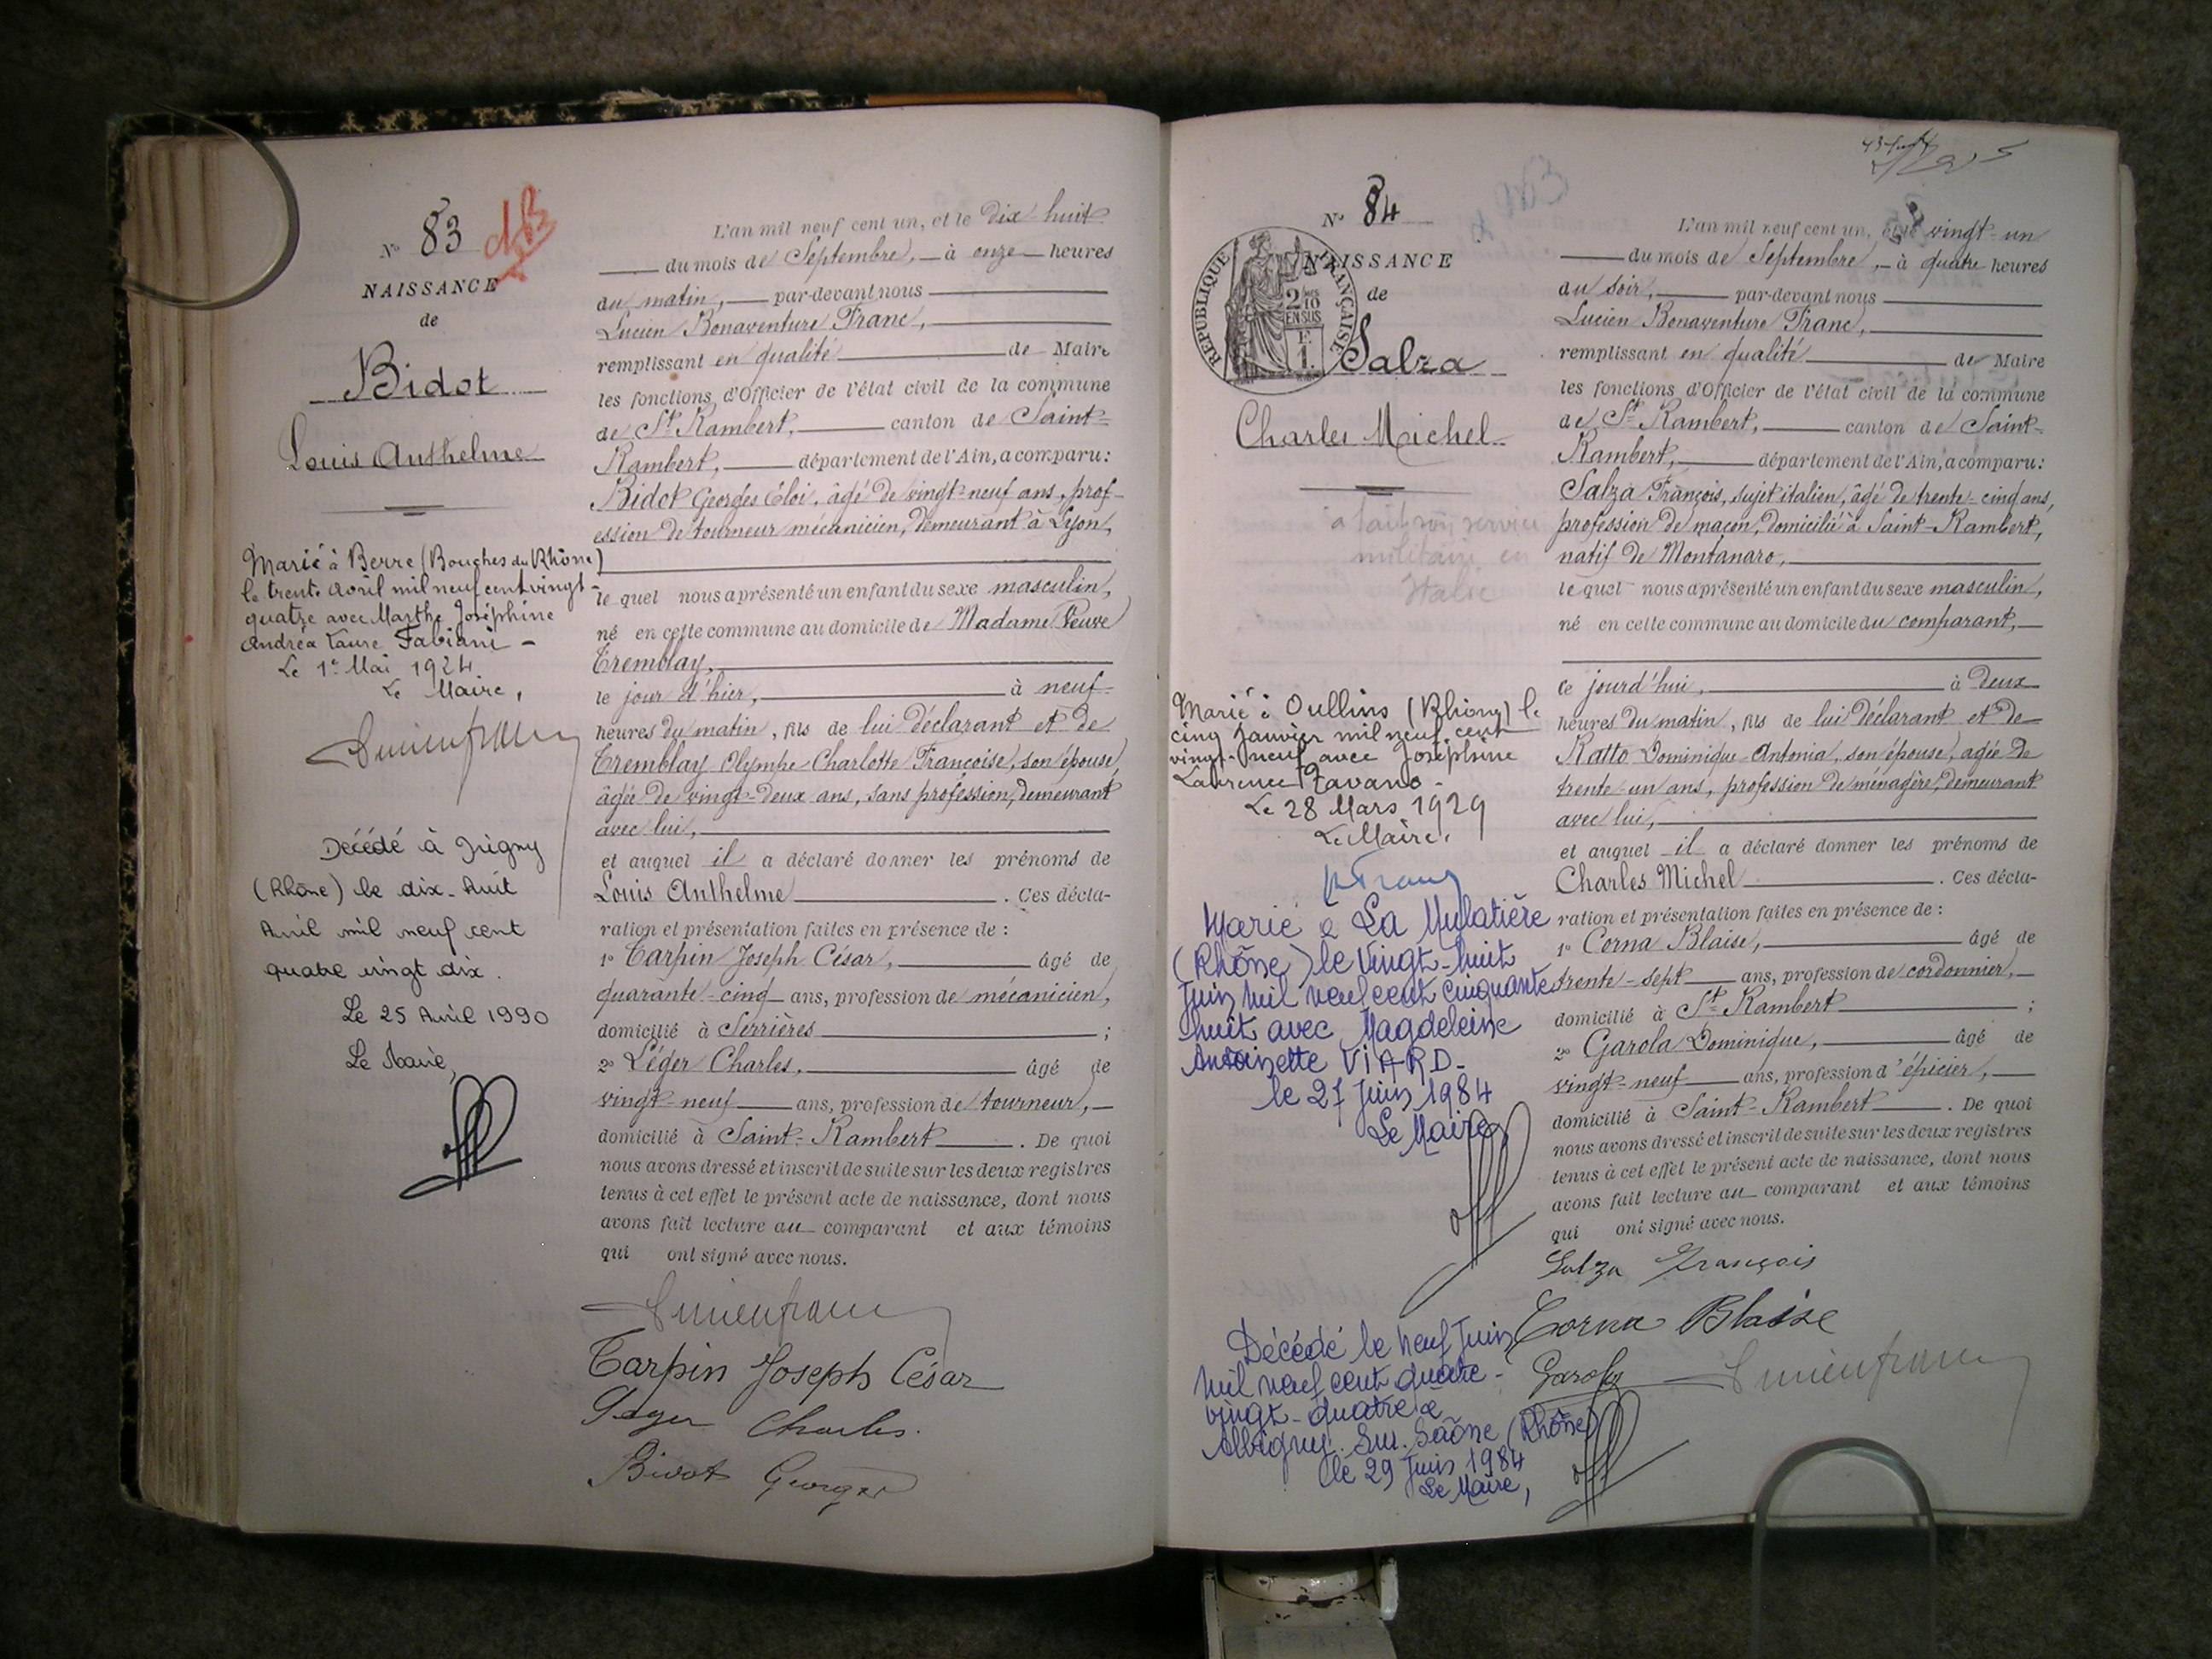 N° 83
NAISSANCE
de
Bidot
Louis Anthelme
Marié à Berre (Bouches du Rhône)
le trente Avril mil neuf cent vingt-
quatre avec Marthe Joséphine
Andréa Laure Fabiani -
Le 1er Mai 1924
Le Maire,
Décédé à Grigny
(Rhône) le dix-huit
Avril mil neuf cent
quatre vingt dix.
Le 25 Avril 1990
Le Maire,
L'an mil neuf cent un, et le dix huit
du mois de Septembre, à onze heures
du matin, par-devant nous
Lucien Bonaventure Franc,
remplissant en qualité de Maire
les fonctions d'Officier de l'état civil de la commune
de St Rambert, canton de Saint-
Rambert, département de l'Ain, a comparu:
Bidot Georges Éloi, âgé de vingt-neuf ans, prof-
ession de tourneur mécanicien, demeurant à Lyon,
le quel nous a présenté un enfant du sexe masculin,
né en cette commune au domicile de Madame Veuve
Tremblay,
le jour d'hier, à neuf
heures du matin, fils de lui déclarant et de
Tremblay Olympe Charlotte Françoise, son épouse,
âgée de vingt-deux ans, sans profession, demeurant
avec lui,
et auquel il a déclaré donner les prénoms de
Louis Anthelme . Ces décla-
ration et présentation faites en présence de :
1° Tarpin Joseph César, âgé de
quarante-cinq ans, profession de mécanicien,
domicilié à Serrières ;
2° Léger Charles, âgé de
vingt-neuf ans, profession de tourneur,
domicilié à Saint-Rambert . De quoi
nous avons dressé et inscrit de suite sur les deux registres
tenus à cet effet le présent acte de naissance, dont nous
avons fait lecture au comparant et aux témoins
qui ont signé avec nous.
Lucien franc
Tarpin Joseph César
Léger Charles.
Bidot Georges
N° 84
NAISSANCE
de
REPUBLIQUE FRANÇAISE
2/10 EN SUS
F. 1.
Salza
Charles Michel
a fait son service
militaire en
Italie
Marié à Oullins (Rhône) le
cinq Janvier mil neuf cent
vingt-neuf avec Joséphine
Laurence Ravano -
Le 28 Mars 1929
Le Maire,
Marié à La Mulatière
(Rhône) le Vingt-huit
Juin mil neuf cent cinquante
huit avec Magdeleine
Antoinette VIARD-
le 27 Juin 1984
Le Maire
Décédé le neuf Juin
mil neuf cent quatre-
vingt-quatre à
Albigny. Sur. Saône (Rhône)
le 29 Juin 1984
Le Maire,
L'an mil neuf cent un, et le vingt-un
du mois de Septembre, à quatre heures
du soir, par-devant nous
Lucien Bonaventure Franc,
remplissant en qualité de Maire
les fonctions d'Officier de l'état civil de la commune
de St Rambert, canton de Saint-
Rambert, département de l'Ain, a comparu:
Salza François, sujet italien, âgé de trente-cinq ans,
profession de maçon, domicilié à Saint-Rambert,
natif de Montanaro,
le quel nous a présenté un enfant du sexe masculin,
né en cette commune au domicile du comparant,
ce jourd'hui, à deux
heures du matin, fils de lui déclarant et de
Ratto Dominique Antonia, son épouse, âgée de
trente un ans, profession de ménagère, demeurant
avec lui,
et auquel il a déclaré donner les prénoms de
Charles Michel . Ces décla-
ration et présentation faites en présence de :
1° Corna Blaise, âgé de
trente-sept ans, profession de cordonnier,
domicilié à St Rambert ;
2° Garola Dominique, âgé de
vingt-neuf ans, profession d'épicier,
domicilié à Saint-Rambert . De quoi
nous avons dressé et inscrit de suite sur les deux registres
tenus à cet effet le présent acte de naissance, dont nous
avons fait lecture au comparant et aux témoins
qui ont signé avec nous.
Salza François
Corna Blaise
Garola Lucien franc